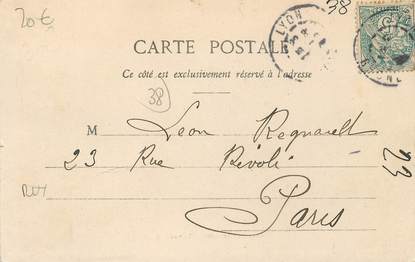 20 €
38
LYON
RHONE
CARTE POSTALE
Ce côté est exclusivement réservé à l'adresse
38
M Leon Regnault
23 Rue Rivoli
Paris
23